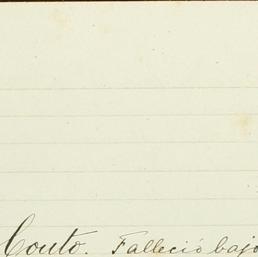 Couto. Falleció bajo